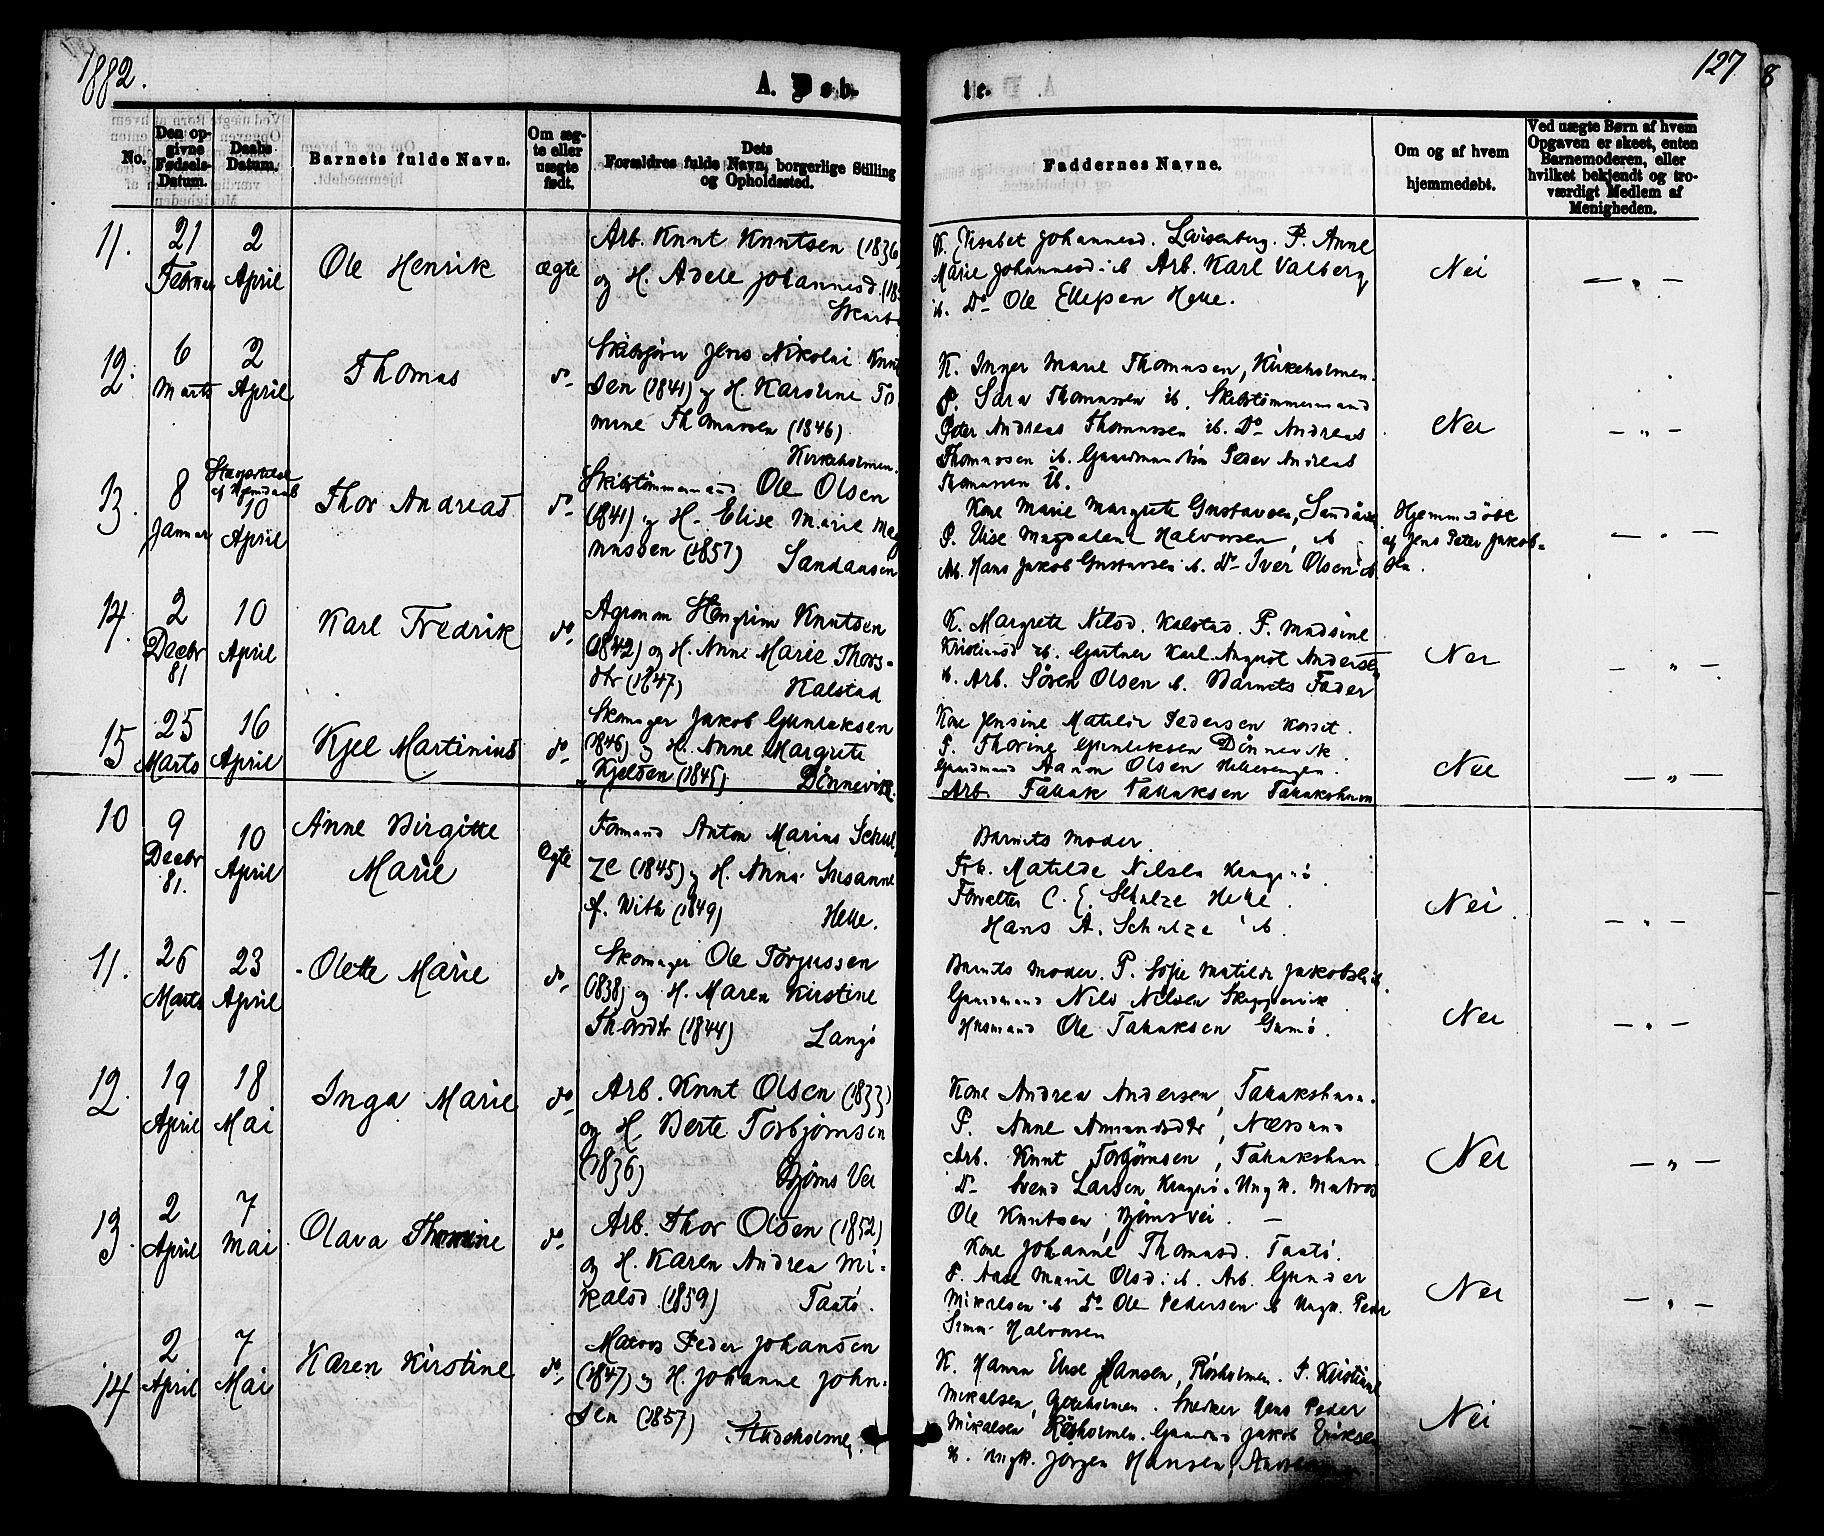 1882.
A. Døb-
te.
127
8
No.
Den op-
givne
Fødsels-
Datum.
Daabs
Datum.
Barnets fulde Navn.
Om æg-
te eller
uægte
født.
Dets
Forældres fulde Navn, borgerlige Stilling
og Opholdssted.
Faddernes Navne.
Om og af hvem
hjemmedøbt.
Ved uægte Børn af hvem
Opgaven er skeet, enten
Barnemoderen, eller
hvilket bekjendt og tro-
værdigt Medlem af
Menigheden.
11.
21
Februar
2
April
Ole Henrik
Ægte
Arb. Knut Knutsen (1836)
og H. Adele Johannesd.
K. Johannesd. P. Anne
Marie Johannesd. ib. Arb. Karl Valberg
ib. Do Ole Ellefsen Helle.
Nei
— " —
12.
6
Marts
2
April
Thomas
do
Skibsfører Jens Nikolai Knut
sen (1841) og H. Karoline To
mine Thomassen (1846)
Kirkeholmen.
K. Inger Marie Thomassen, Kirkeholmen.
P. Sara Thomassen ib. Skibstømmermand
Peter Andreas Thomassen ib. Do Andreas
Thomassen ib. Gaardmand Peder Andreas
Thomassen ib.
Nei
— " —
13.
8
Januar
Stadfæstelse
af Hjemdaab
10
April
Thor Andreas
do
Skibstømmermand Ole Olsen
(1841) og H. Elise Marie Mag
nussen (1857) Sandaasen
Kone Marie Margrete Gustavsen, Sandaasen
P. Elise Magdalene Halvorsen, ib
Arb. Hans Jakob Gustavsen ib. Do Iver Olsen ib.
Hjemmedøbt
af Jens Peter Jakob-
sen.
— " —
14.
2
Decbr
81
10
April
Karl Fredrik
do
Agronom Knutsen
(1842) og H. Anne Marie Thors-
dtr (1847) Kalstad
K. Margrete Nilsd. Kalstad. P. Madsine
Kristensd ib. Gartner Karl August Andersen
ib. Arb. Søren Olsen ib. Barnets Fader
Nei
— " —
15
25
Marts
16
April
Kjel Martinius
do
Skomager Jakob Gunleksen
(1846) og H. Anne Margrete
Kjelsen (1845) Dønnevik.
Kone Jensine Matilde Pedersen
P. Thorine Gunleksen Dønnevik.
Gaardmand Aanon Olsen Hellevengen.
Arb. Tallak Tallaksen
Nei
— " —
10
9
Decbr
81.
10
April
Anne Birgitte
Marie
Ægte
Formand Anton Marius Schul
ze (1845) og H. Anna Susanne
f. With (1849) Helle.
Barnets Moder.
Frk. Matilde Nilsen Kragerø.
Forvalter C. E. Schulze Helle.
Hans A. Schulze ib.
Nei.
— " —
11.
26
Marts
23
April
Olette Marie
do
Skomager Ole Torjussen
(1838) og H. Maren Kirstine
Thorsdtr (1844) Langø
Barnets Moder. P. Sofie Matilde
Gaardmand Nils Nilsen
Husmand Ole Tallaksen Gumø.
Nei
— " —
12.
19
April
18
Mai
Inga Marie
do
Arb. Knut Olsen (1833)
og H. Berte Torbjørnsen
(1836) Bjørns Vei
Kone Andrea Andersen,
P. Anne
Arb. Knut Torbjørnsen,
Do Svend Larsen, Kragerø. Ungk. Matros
Ole Knutsen, Bjørnsvei.
Nei
— " —
13.
2
April
7
Mai
Olava Thomine
do
Arb. Thor Olsen (1852)
og H. Karen Andrea Mi-
kalsd. (1859) Taatø.
Kone Johanne Thomasd. Taatø.
P. Aase Marie Olsd. ib. Arb. Gunder
Mikalsen ib Do Ole Pedersen ib Ungk. Peder
Halvorsen
Nei
— " —
14
2
April
7
Mai
Karen Kirstine
do
Matros Peder Johansen
(1847) og H. Johanne John-
sen (1857)
K. Hanna Elise Hansen, P. Kristiane
Mikalsen, Snedker Hans Peder
Mikalsen Jakob Eriksen
ib. Ungk. Jørgen Hansen,
Nei